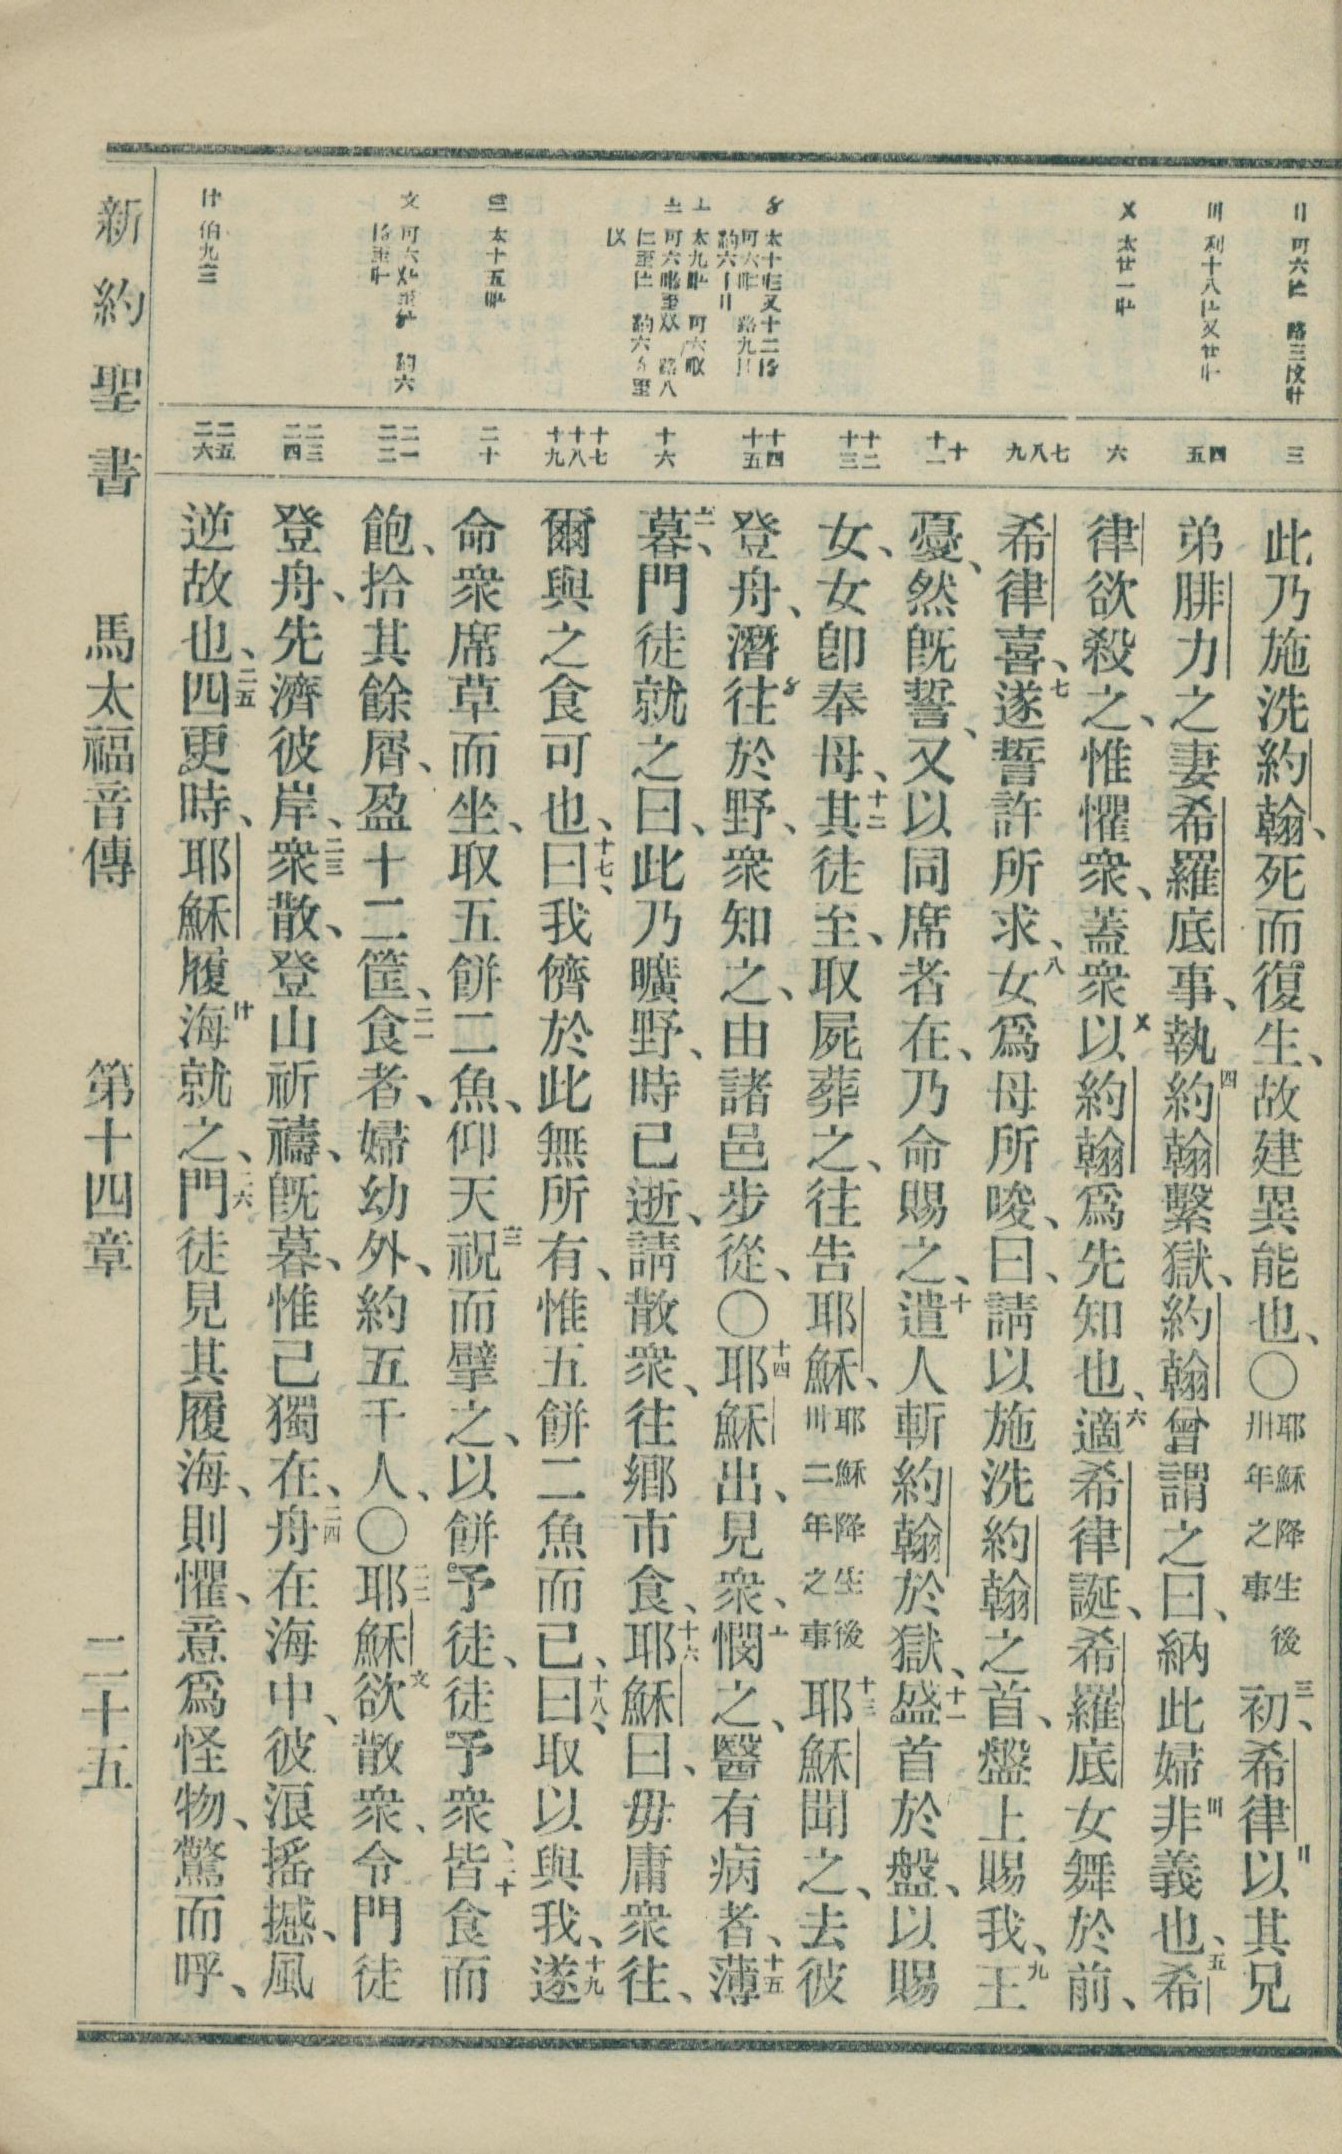 此乃施洗約翰、死而復生、故建異能也、〇耶穌降生後卅二年之事三初、希律以其兄
弟腓力之妻希羅底事、執四約翰繫獄、約翰曾謂之曰、納此婦非義也、五希
律欲殺之、惟懼衆、蓋衆以約翰爲先知也、六適希律誕、希羅底女舞於前、
希律喜、七遂誓許所求、八女爲母所唆、曰、請以施洗約翰之首、盤上賜我、九王
憂、然旣誓、又以同席者在、乃命賜之、十遣人斬約翰於獄、十一盛首於盤、以賜
女、女卽奉母、十二其徒至、取屍葬之、往告耶穌、耶穌降生後卅二年之事十三耶穌聞之、去彼
登舟、潛往於野、衆知之、由諸邑步從、〇十四耶穌出、見衆、憫之、醫有病者、十五薄
暮、門徒就之曰、此乃曠野、時已逝、請散衆、往鄉市食、十六耶穌曰、毋庸衆往、
爾與之食可也、十七曰、我儕於此無所有、惟五餅二魚而已、十八曰、取以與我、十九遂
命衆席草而坐、取五餅二魚、仰天祝而擘之、以餅予徒、徒予衆、二十皆食而
飽、拾其餘屑、盈十二筐、二一食者、婦幼外、約五千人、〇二二耶穌欲散衆、令門徒
登舟、先濟彼岸、二三衆散、登山祈禱、旣暮、惟己獨在、二四舟在海中、彼浪搖撼、風
逆故也、二五四更時、耶穌履海就之、二六門徒見其履海、則懼、意爲怪物、驚而呼、
新約聖書 馬太福音傳 第十四章 二十五
三
四 五
六
七 八 九
十 十一
十二 十三
十四 十五
十六
十七 十八 十九
二十
二一 二二
二三 二四
二五 二六